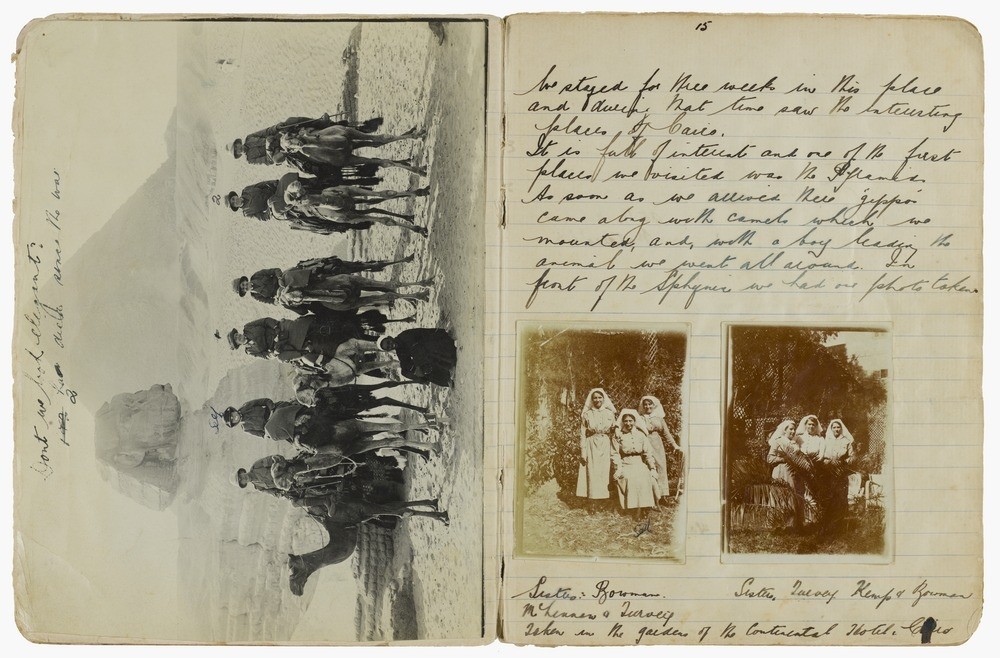 Dont we look elegant?
2 has died since the war
2
self
15
We stayed for three weeks in this place
and during that time saw the interesting
places of Cairo.
It is full of interest and one of the first
places we visited was the Pyramids
As soon as we arrived there 'gippos'
came along with camels which we
mounted, and, with a boy leading the
animal we went all around. In
front of the Sphynx we had our photo taken
self
Sisters: Bowman.
McLennan & Turvey
Sisters, Turvey Kemp & Bowman
Taken in the gardens of the Continental Hotel: Cairo